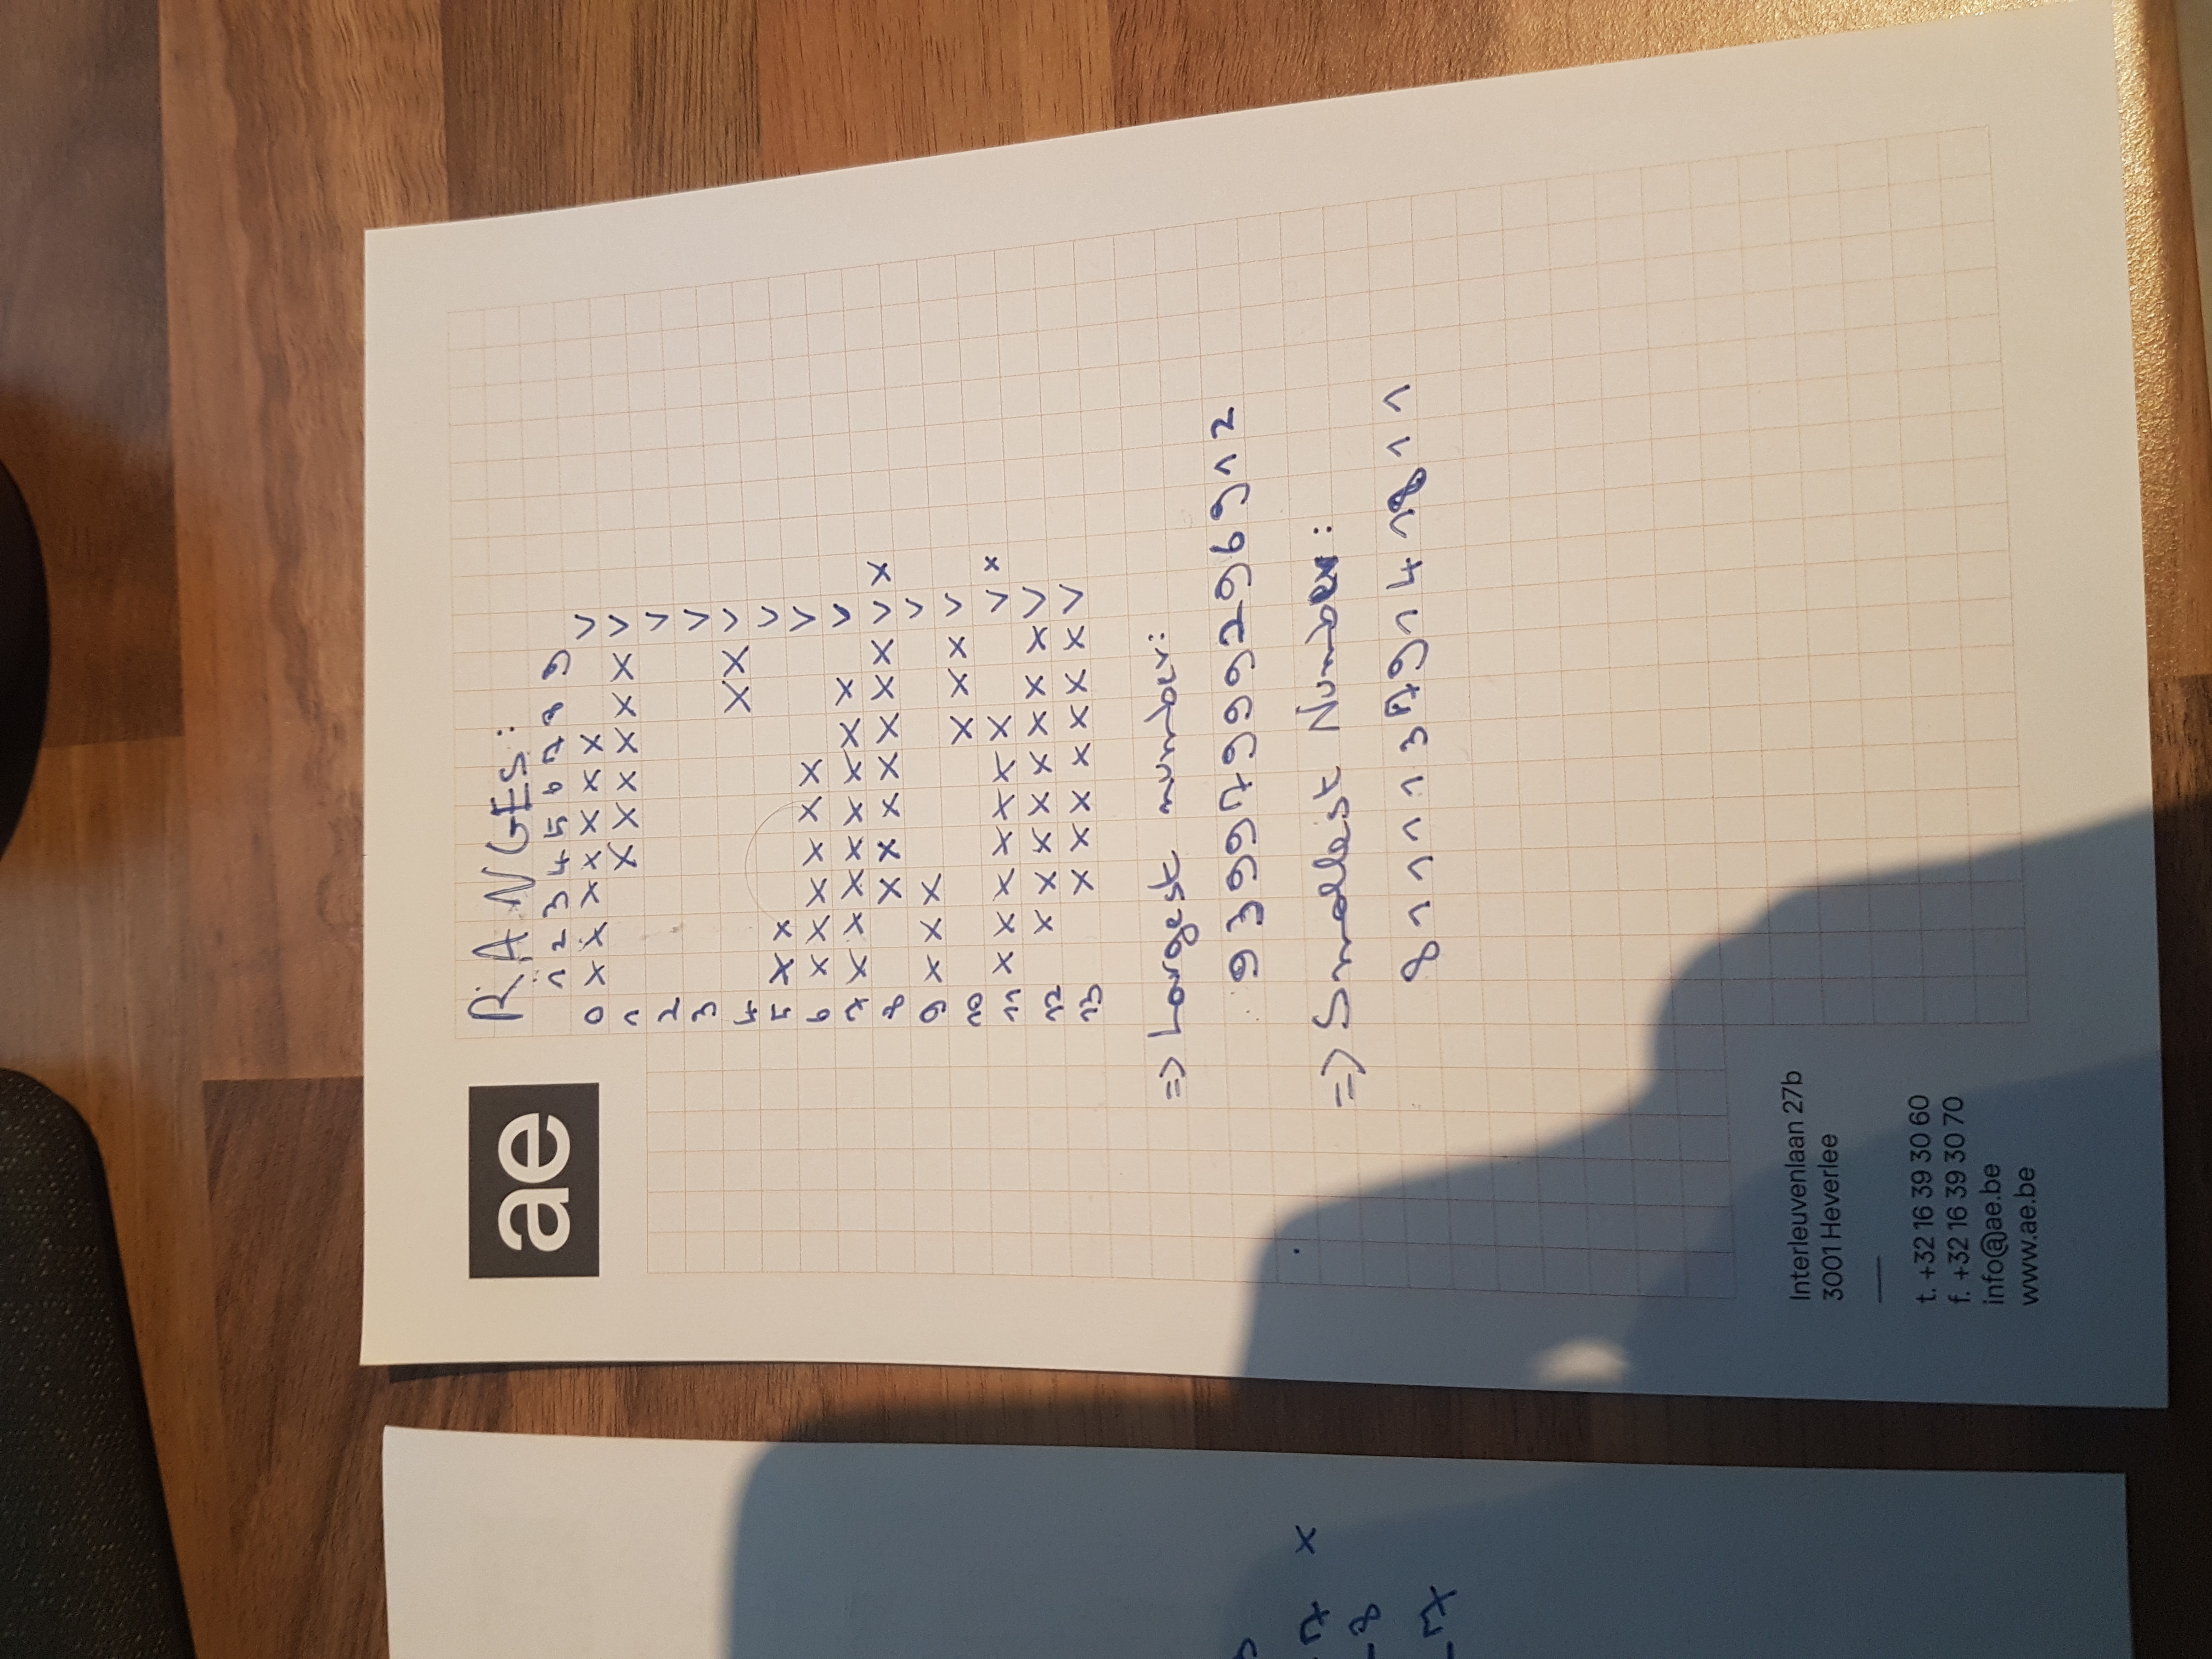 ae
RANGES:
1 2 3 4 5 6 7 8 9
0 x x x x x x x v
1 x x x x x x v
2 v
3 v
5 x x v
5 x x v
6 x x x x x x v
7 x x x x x x x x v
8 x x x x x x x v x
9 x x x v
10 x x x v
11 x x x x x x x v x
12 x x x x x x x x v
13 x x x x x x x v
=> Largest number:
93997999296912
=> Smallest Number:
81111379141811
7 x
-8
-7
Interleuvenlaan 27b
3001 Heverlee
t. +32 16 39 30 60
f. +32 16 39 30 70
info@ae.be
www.ae.be